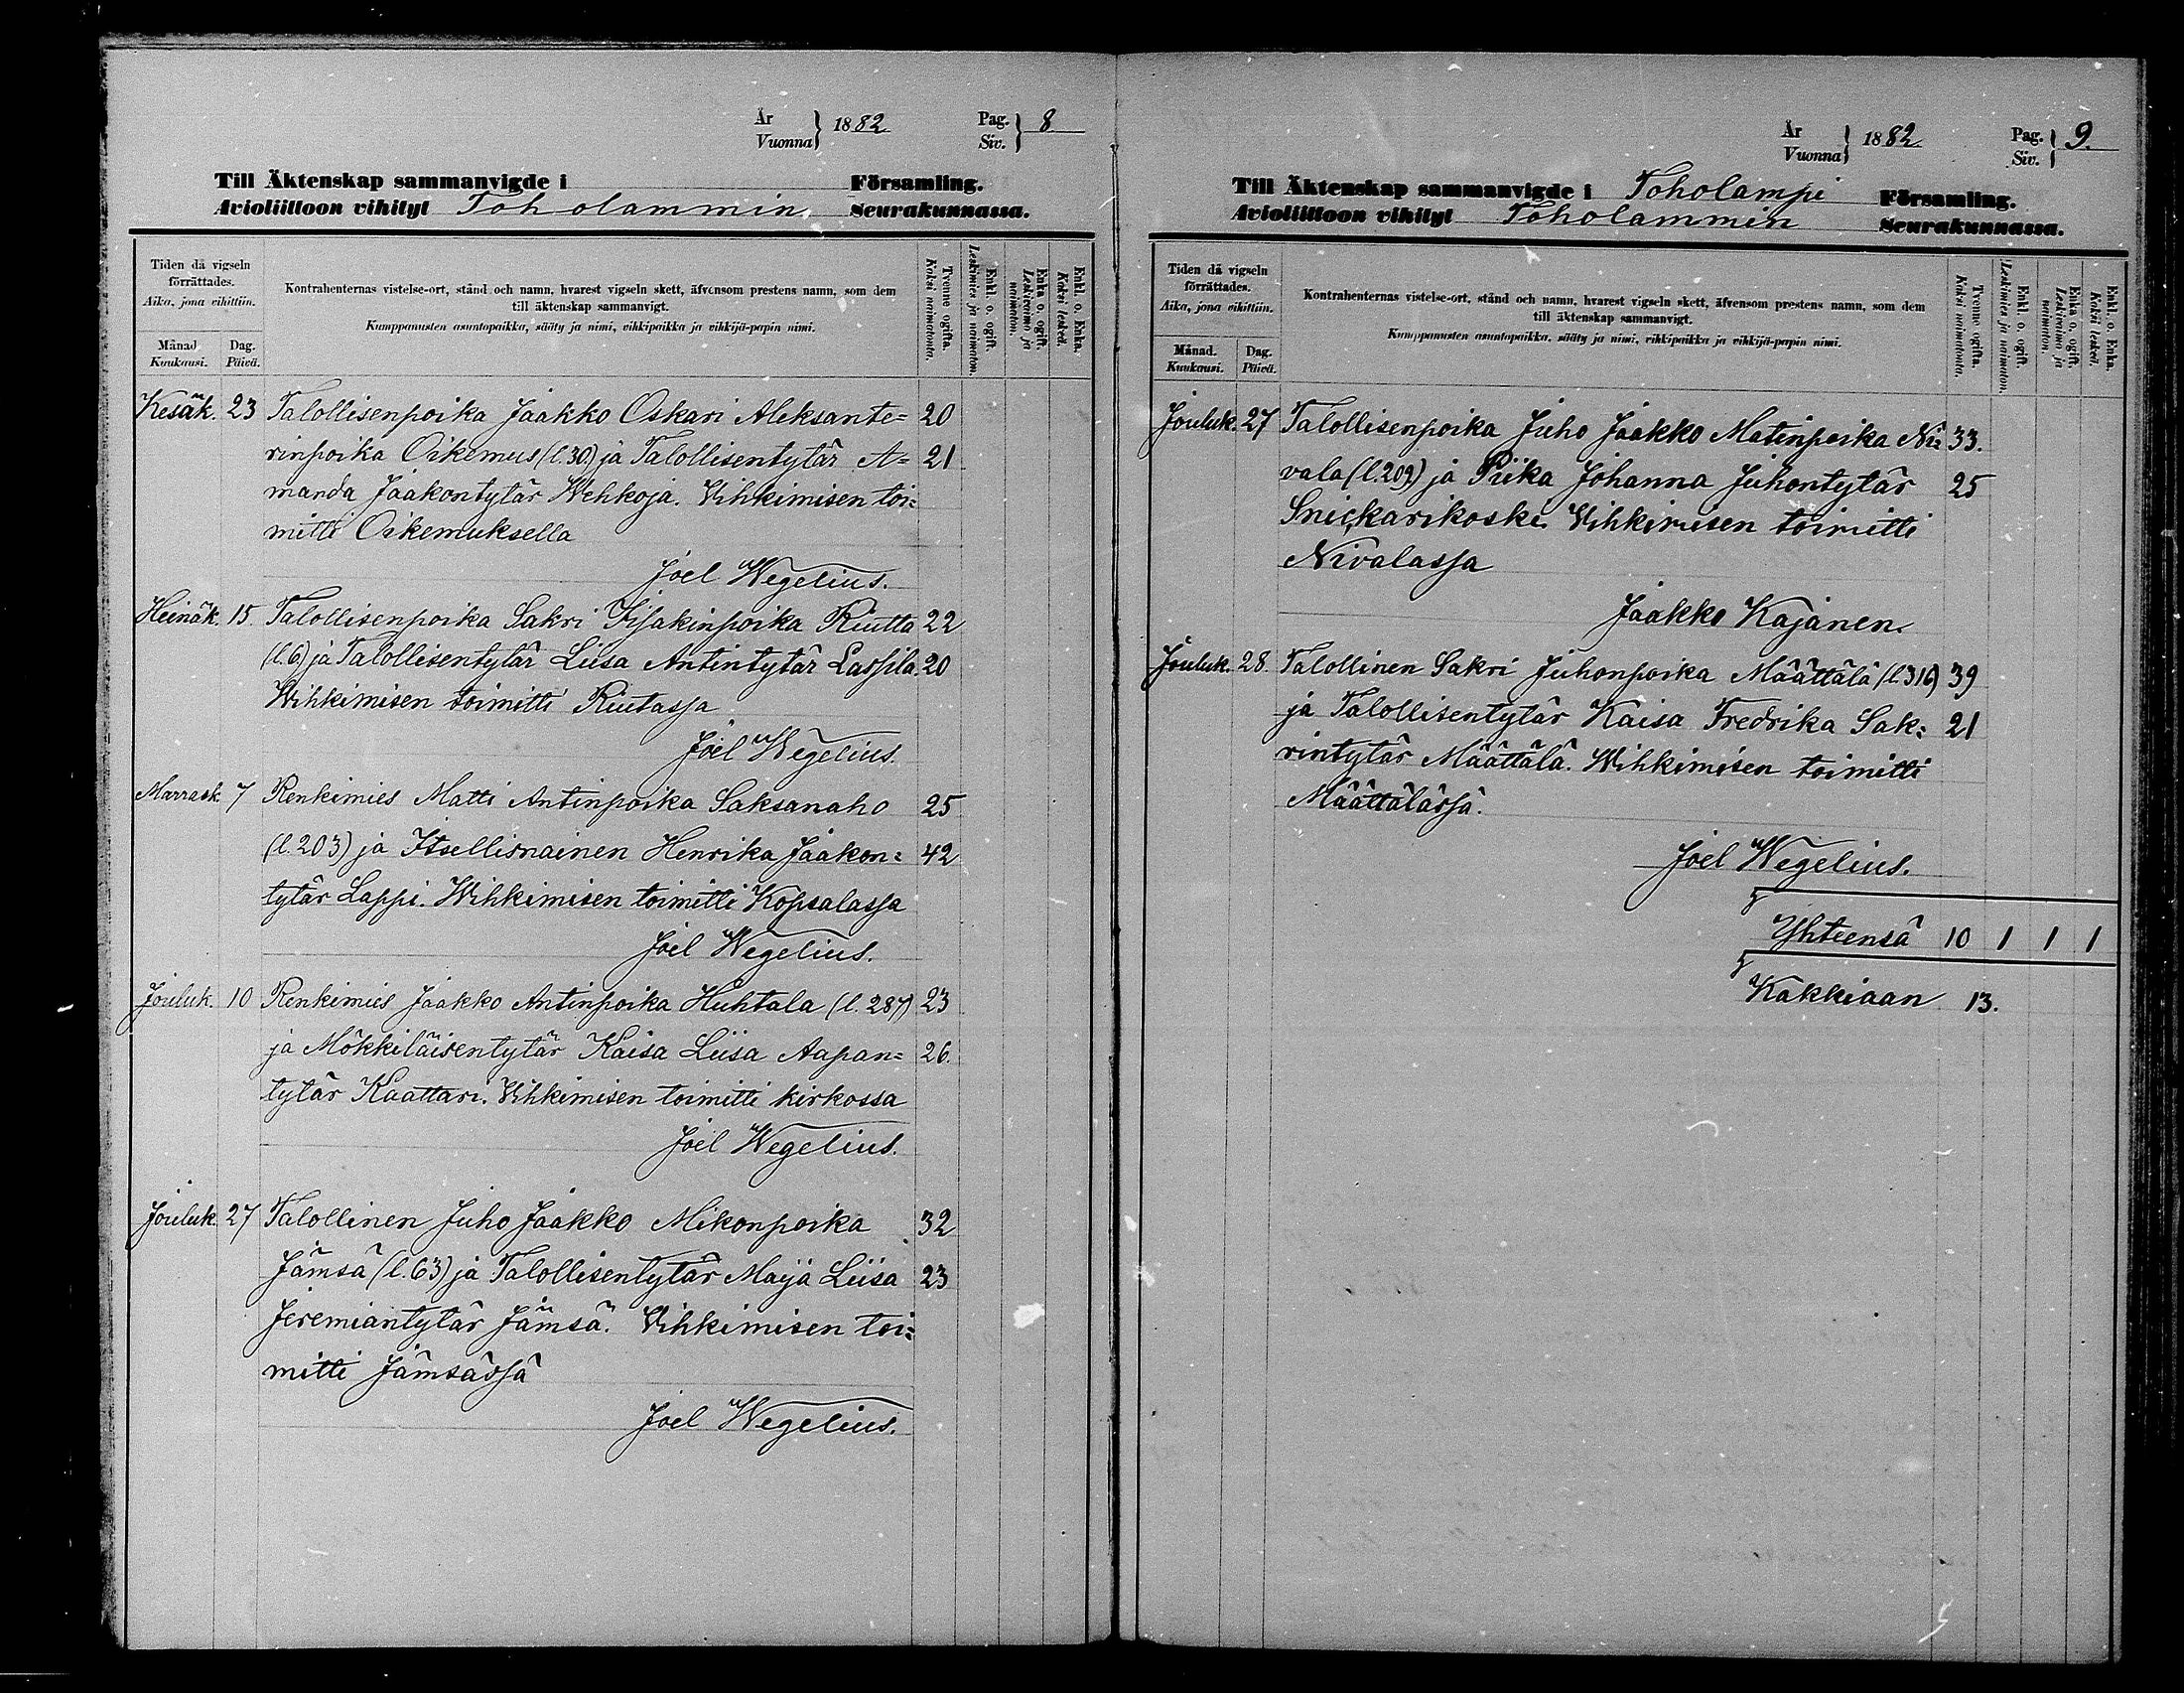 År
Vuonna } 1882
Pag.
Siv. } 8
Till Äktenskap sammanvigde i Församling.
Avioliittoon vihityt Toholammin Seurakunnassa.
Tiden då vigseln
förrättades.
Aika, jona vihittiin.
Månad
Kuukausi.
Dag.
Päivä.
Kontrahenternas vistelse-ort, stånd och namn, hvarest vigseln skett, äfvensom prestens namn, som dem
till äktenskap sammanvigt.
Kumppanusten asuntopaikka, sääty ja nimi, vihkipaikka ja vihkijä-papin nimi.
Tvenne ogifta.
Kaksi naimatonta.
Enkl. o. ogift.
Leskimies ja naimaton.
Enka o. ogift.
Leskivaimo ja
naimaton.
Enkl. o. Enka.
Kaksi leskeä.
Kesäk. 23 Talollisenpoika Jaakko Oskari Aleksante= 20
rinpoika Oikemus (l.30) ja Talollisentytär A= 21
manda Jaakontytär Wehkoja. Vihkimisen toi=
mitti Oikemuksella
Joel Wegelius.
Heinäk. 15. Talollisenpoika Sakri Iisakinpoika Riutta 22
(l.6) ja Talollisentytär Liisa Antintytär Lassila. 20
Wihkimisen toimitti Riutassa
Joel Wegelius.
Marrask. 7 Renkimies Matti Antinpoika Saksanaho 25
(l.203) ja Itsellisnainen Henrika Jaakon= 42
tytär Lappi. Wihkimisen toimitti Kopsalassa
Joel Wegelius.
Jouluk. 10 Renkimies Jaakko Antinpoika Huhtala (l. 287) 23
ja Mökkiläisentytär Kaisa Liisa Aapan= 26.
tytär Kaattari. Vihkimisen toimitti kirkossa
Joel Wegelius.
Jouluk. 27 Talollinen Juho Jaakko Mikonpoika 32
Jämsä (l.63) ja Talollisentytär Maija Liisa 23
Jeremiantytär Jämsä. Vihkimisen toi=
mitti Jämsässä
Joel Wegelius.
År
Vuonna } 1882
Pag.
Siv. } 9.
Till Äktenskap sammanvigde i Toholampi Församling.
Avioliittoon vihityt Toholammin Seurakunnassa.
Tiden då vigseln
förrättades.
Aika, jona vihittiin.
Månad.
Kuukausi.
Dag.
Päivä.
Kontrahenternas vistelse-ort, stånd och namn, hvarest vigseln skett, äfvensom prestens namn, som dem
till äktenskap sammanvigt.
Kumppanusten asuntopaikka, sääty ja nimi, vihkipaikka ja vihkijä-papin nimi.
Tvenne ogifta.
Kaksi naimatonta.
Enkl. o. ogift.
Leskimies ja naimaton.
Enka o. ogift.
Leskivaimo ja
naimaton.
Enkl. o. Enka.
Kaksi leskeä.
Jouluk. 27 Talollisenpoika Juho Jaakko Matinpoika Ni= 33.
vala (l.209) ja Piika Johanna Juhontytär 25
Snickarikoski. Vihkimisen toimitti
Nivalassa
Jaakko Kajanen.
Jouluk. 28. Talollinen Sakri Juhonpoika Määttälä (l.316) 39
ja Talollisentytär Kaisa Fredrika Sak= 21
rintytär Määttälä. Wihkimisen toimitti
Määttälässä.
Joel Wegelius.
Yhteensä 10 1 1 1
Kakkiaan 13.